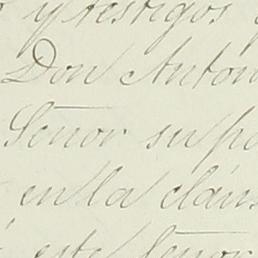 y testigos
Don Anton
Señor su po
en la cláus
este Señor